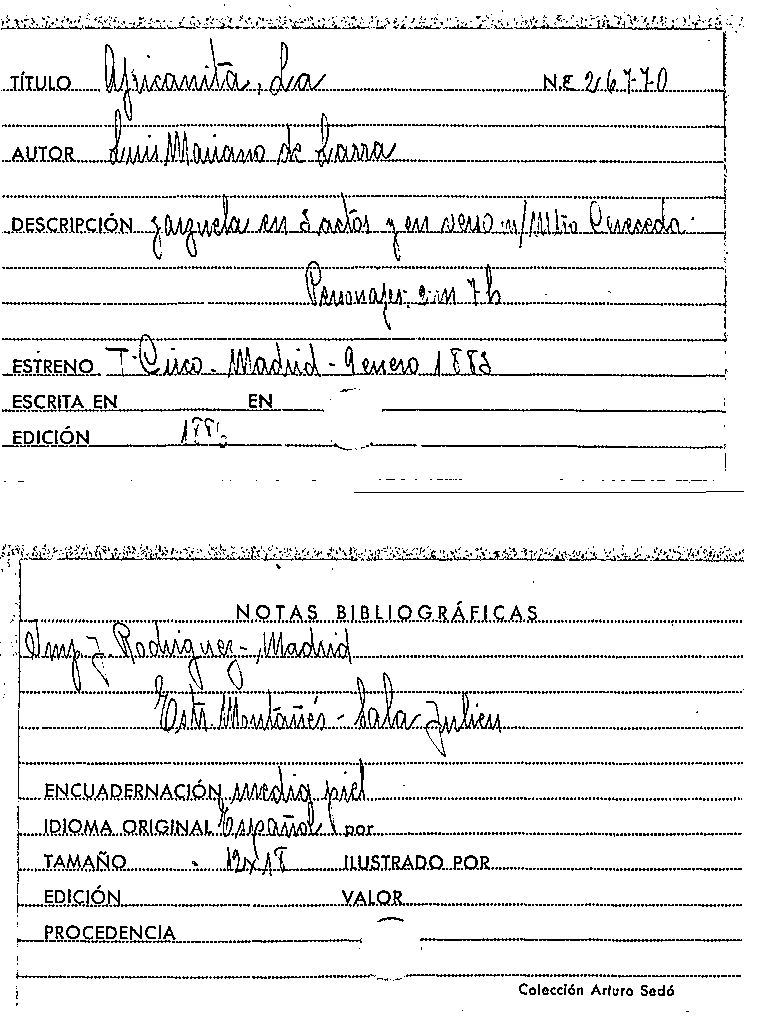 TÍTULO Africanita, La N.E 26770
AUTOR Luis Mariano de Larra
DESCRIPCIÓN zarzuela en 3 actos y en verso m/ Mtro Cereceda
Personajes: 2 m 7 h
ESTRENO T- Circo. Madrid - 9 enero 1883
ESCRITA EN EN
EDICIÓN 188
NOTAS BIBLIOGRÁFICAS
Imp J. Rodriguez -, Madrid
Estr. Montañés - Sala Julien
ENCUADERNACIÓN media piel
IDIOMA ORIGINAL Español por
TAMAÑO 12x18 ILUSTRADO POR
EDICIÓN VALOR
PROCEDENCIA
Colección Arturo Sedó